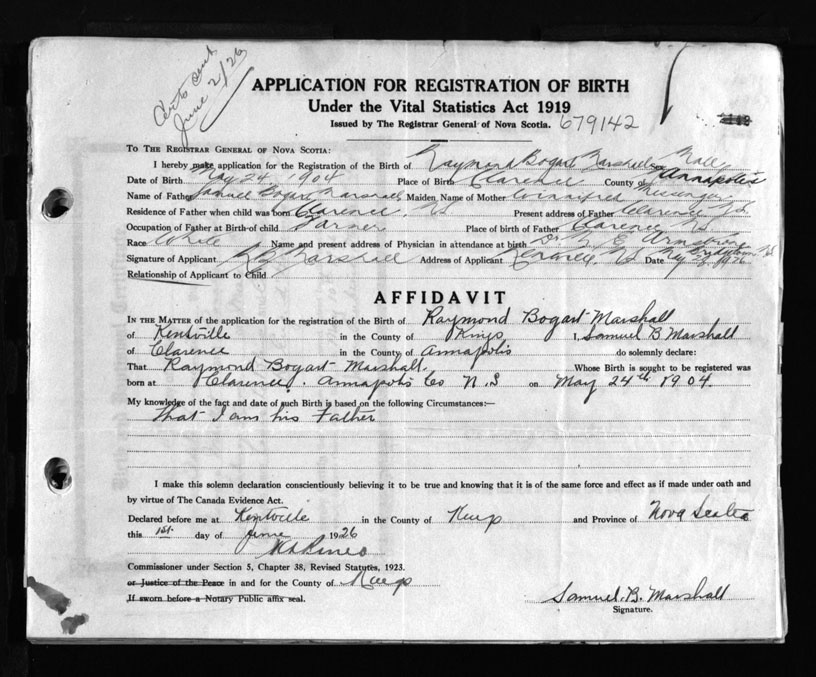 Certs sent
June 2/26
APPLICATION FOR REGISTRATION OF BIRTH
Under the Vital Statistics Act 1919
Issued by The Registrar General of Nova Scotia. 679142
TO THE REGISTRAR GENERAL OF NOVA SCOTIA:
I hereby make application for the Registration of the Birth of Raymond Bogart Marshall Male
Date of Birth May 24, 1904 Place of Birth Clarence County of Annapolis
Name of Father Samuel Bogart Marshall Maiden Name of Mother Winnifred
Residence of Father when child was born Clarence NS Present address of Father Clarence NS
Occupation of Father at Birth of child Farmer Place of birth of Father Clarence NS
Race White Name and present address of Physician in attendance at birth Dr M E Armstrong Bridgetown NS
Signature of Applicant R B Marshall Address of Applicant NS Date May 1926
Relationship of Applicant to Child
AFFIDAVIT
IN THE MATTER of the application for the registration of the Birth of Raymond Bogart Marshall
of Kentville in the County of Kings I, Samuel B Marshall
of Clarence in the County of Annapolis do solemnly declare:
That Raymond Bogart Marshall. Whose Birth is sought to be registered was
born at Clarence, Annapolis Co N.S on May 24th 1904.
My knowledge of the fact and date of such Birth is based on the following Circumstances:—
That I am his Father
I make this solemn declaration conscientiously believing it to be true and knowing that it is of the same force and effect as if made under oath and
by virtue of The Canada Evidence Act.
Declared before me at Kentville in the County of Kings and Province of Nova Scotia
this 1st day of June 1926
Commissioner under Section 5, Chapter 38, Revised Statutes, 1923.
or Justice of the Peace in and for the County of Kings
If sworn before a Notary Public affix seal.
Samuel. B. Marshall
Signature.